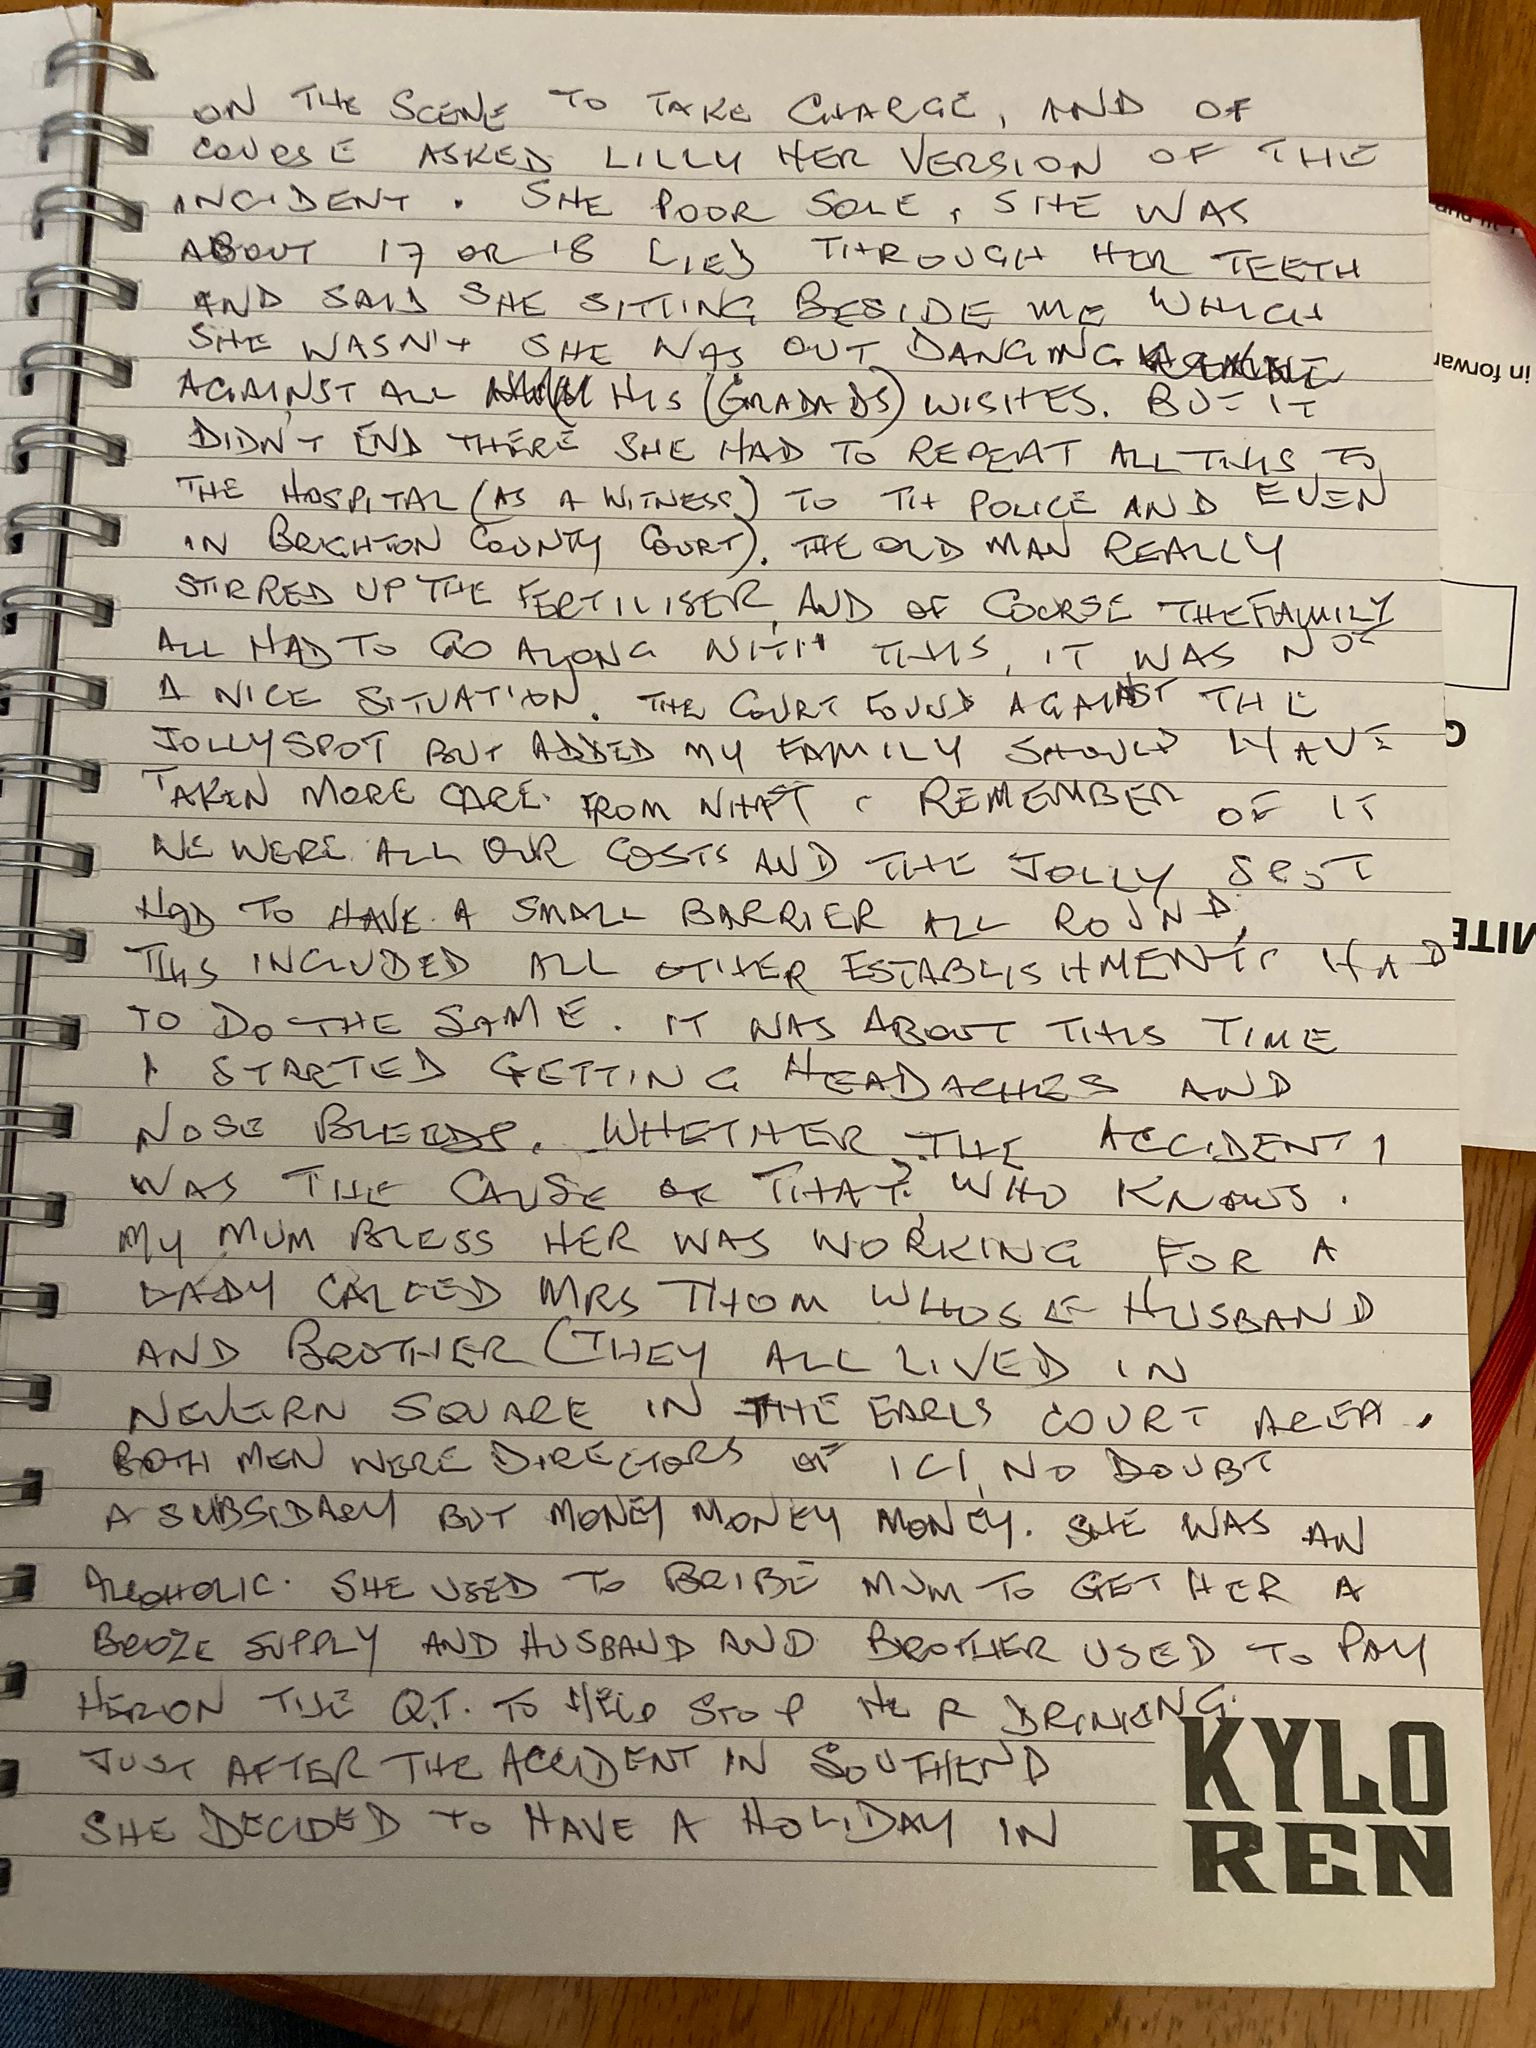 ON THE SCENE TO TAKE CHARGE, AND OF
COURSE ASKED LILLY HER VERSION OF THE
INCIDENT. SHE POOR SOLE, SHE WAS
ABOUT 17 OR 18 LIED THROUGH HER TEETH
AND SAID SHE SITTING BESIDE ME WHICH
SHE WASN'T SHE WAS OUT DANCING
AGAINST ALL HIS (GRADADS) WISHES. BUT IT
DIDN'T END THERE SHE HAD TO REPEAT ALL THIS TO
THE HOSPITAL (AS A WITNESS) TO TH POLICE AND EVEN
IN BRIGHTON COUNTY COURT). THE OLD MAN REALLY
STIRRED UP THE FERTILISER, AND OF COURSE THE FAMILY
ALL HAD TO GO ALONG WITH THIS, IT WAS NOT
A NICE SITUATION. THE COURT FOUND AGAINST THE
JOLLY SPOT BUT ADDED MY FAMILY SHOULD HAVE
TAKEN MORE CARE. FROM WHAT I REMEMBER OF IT
WE WERE ALL OUR COSTS AND THE JOLLY SPOT
HAD TO HAVE A SMALL BARRIER ALL ROUND.
THIS INCLUDED ALL OTHER ESTABLISHMENTS HAD
TO DO THE SAME. IT WAS ABOUT THIS TIME
I STARTED GETTING HEADACHES AND
NOSE BLEEDS. WHETHER THE ACCIDENT
WAS THE CAUSE OF THAT? WHO KNOWS.
MY MUM BLESS HER WAS WORKING FOR A
LADY CALLED MRS THOM WHOSE HUSBAND
AND BROTHER (THEY ALL LIVED IN
NEVERN SQUARE IN THE EARLS COURT AREA.
BOTH MEN WERE DIRECTORS OF ICI, NO DOUBT
A SUBSIDARY BUT MONEY MONEY MONEY. SHE WAS AN
ALCOHOLIC. SHE USED TO BRIBE MUM TO GET HER A
BOOZE SUPPLY AND HUSBAND AND BROTHER USED TO PAY
HER ON THE Q.T. TO HELP STOP HER DRINKING.
JUST AFTER THE ACCIDENT IN SOUTHEND
SHE DECIDED TO HAVE A HOLIDAY IN
KYLO
REN
in forwar